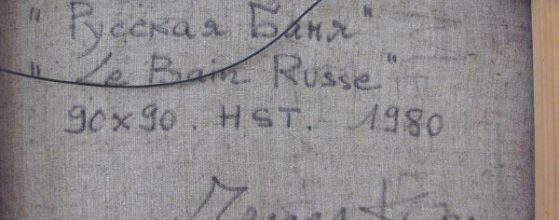 "Русская Баня"
"Le Bain Russe"
90x90. HST. 1980